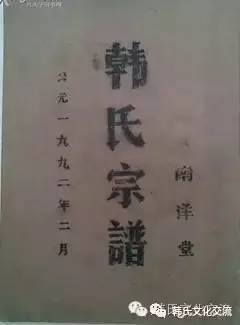 南洋堂
韩氏宗譜
公元一九九二年二月
韩氏文化交流